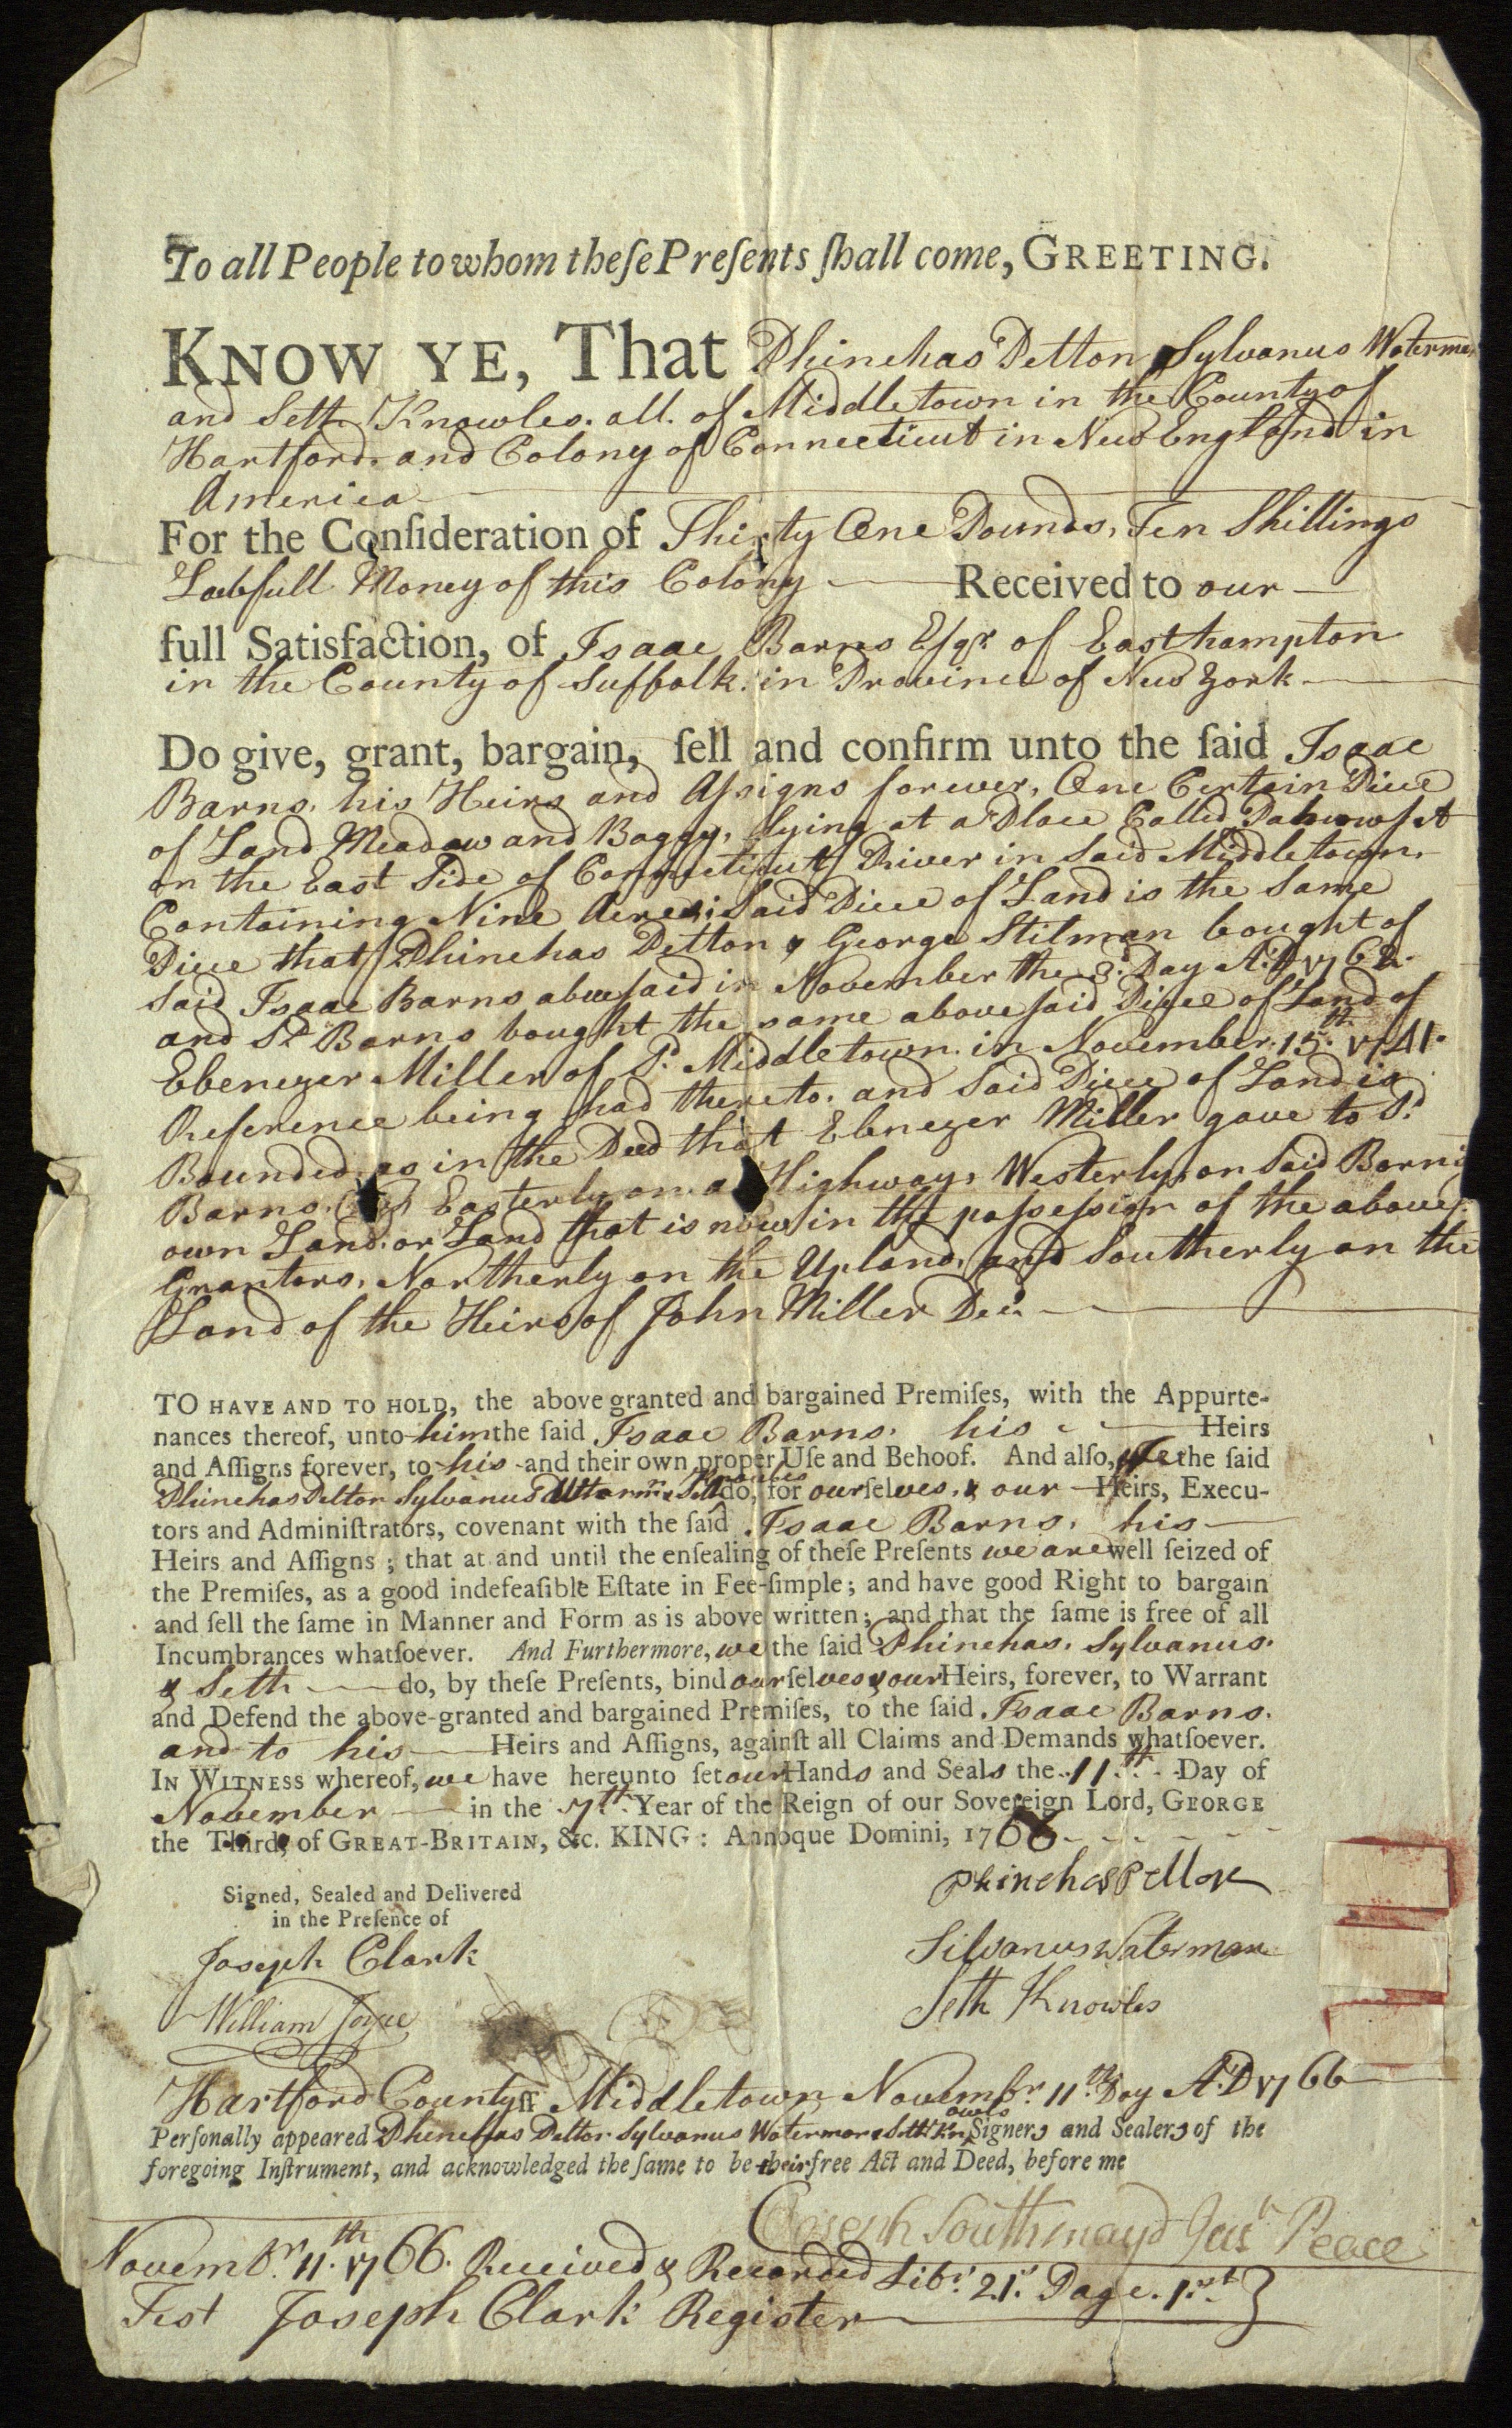 To all People to whom theſe Preſents ſhall come, GREETING.
KNOW YE, That Phinehas Pelton, Sylvanus Waterman
and Seth Knowles. all. of Middletown in the County of
Hartford. and Colony of Connecticut in New England in
America
For the Conſideration of Thirty One Pounds, Ten Shillings
Lawfull Money of this Colony Received to our
full Satisfaction, of Isaac Barns Eſqr. of Easthampton
in the County of Suffolk. in Province of New York
Do give, grant, bargain, ſell and confirm unto the ſaid Isaac
Barns. his Heirs and Aſsigns forever, One Certain Piece
of Land Meadow and Boggy, lying at a Place Called
on the East Side of Connecticutt River in Said Middletown.
Containing Nine Acres; Said Piece of Land is the Same
Piece that Phinehas Pelton & George Stilman bought of
Said Isaac Barns aboveſaid in November the 8th. Day A:D 1762.
and Sd. Barns bought the same aboveſaid Piece of Land of
Ebenezer Miller of Sd. Middletown. in November. 15.th 1741.
Reference being had thereto. and Said Piece of Land is
Bounded. as in the Deed that Ebenezer Miller gave to Sd.
Barns. Easterly on a Highway, Westerly on Said Barns
own Land. or Land that is now in the poſseſsion of the aboves.
Grantors, Northerly on the Upland, and Southerly on the
Land of the Heirs of John Miller Decd.
TO HAVE AND TO HOLD, the above granted and bargained Premiſes, with the Appurte-
nances thereof, unto him the ſaid Isaac Barns. his Heirs
and Aſſigns forever, to his and their own proper Uſe and Behoof. And alſo, we the ſaid
Phinehas Pelton Sylvanus Watermn. & Seth Knowles do, for ourſelves, & our Heirs, Execu-
tors and Adminiſtrators, covenant with the ſaid Isaac Barns, his
Heirs and Aſſigns; that at and until the enſealing of theſe Preſents we are well ſeized of
the Premiſes, as a good indefeaſible Eſtate in Fee-ſimple; and have good Right to bargain
and ſell the ſame in Manner and Form as is above written; and that the ſame is free of all
Incumbrances whatſoever. And Furthermore, we the ſaid Phinehas. Sylvanus.
& Seth do, by theſe Preſents, bind ourſelves & our Heirs, forever, to Warrant
and Defend the above-granted and bargained Premiſes, to the ſaid Isaac Barns.
and to his Heirs and Aſſigns, againſt all Claims and Demands whatſoever.
IN WITNESS whereof, we have hereunto ſet our Hands and Seals the 11th. Day of
November in the 7th. Year of the Reign of our Sovereign Lord, GEORGE
the Third, of GREAT-BRITAIN, &c. KING: Annoque Domini, 1766
Signed, Sealed and Delivered
in the Preſence of
Phinehas Pelton
Joseph Clark
Silvanus Waterman
William Joyce
Seth Knowles
Hartford County ſſ Middletown Novembr. 11.th Day A:D 1766
Perſonally appeared Phinehas Pelton Sylvanus Waterman & Seth Knowles Signers and Sealers of the
foregoing Inſtrument, and acknowledged the ſame to be their free Act and Deed, before me
Joseph Southmayd Just. Peace
Novembr. 11.th 1766. Received & Recorded Libr. 21st. Page. 1.st
Test Joseph Clark Register